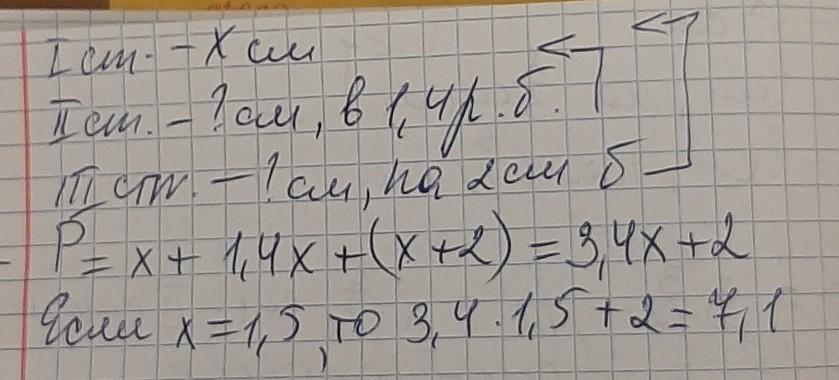 I ст. – x см
II ст. – ? см, в 1,4 р. б.
III ст. – ? см, на 2 см б
P = x + 1,4x + (x + 2) = 3,4x + 2
Если x = 1,5, то 3,4 · 1,5 + 2 = 7,1